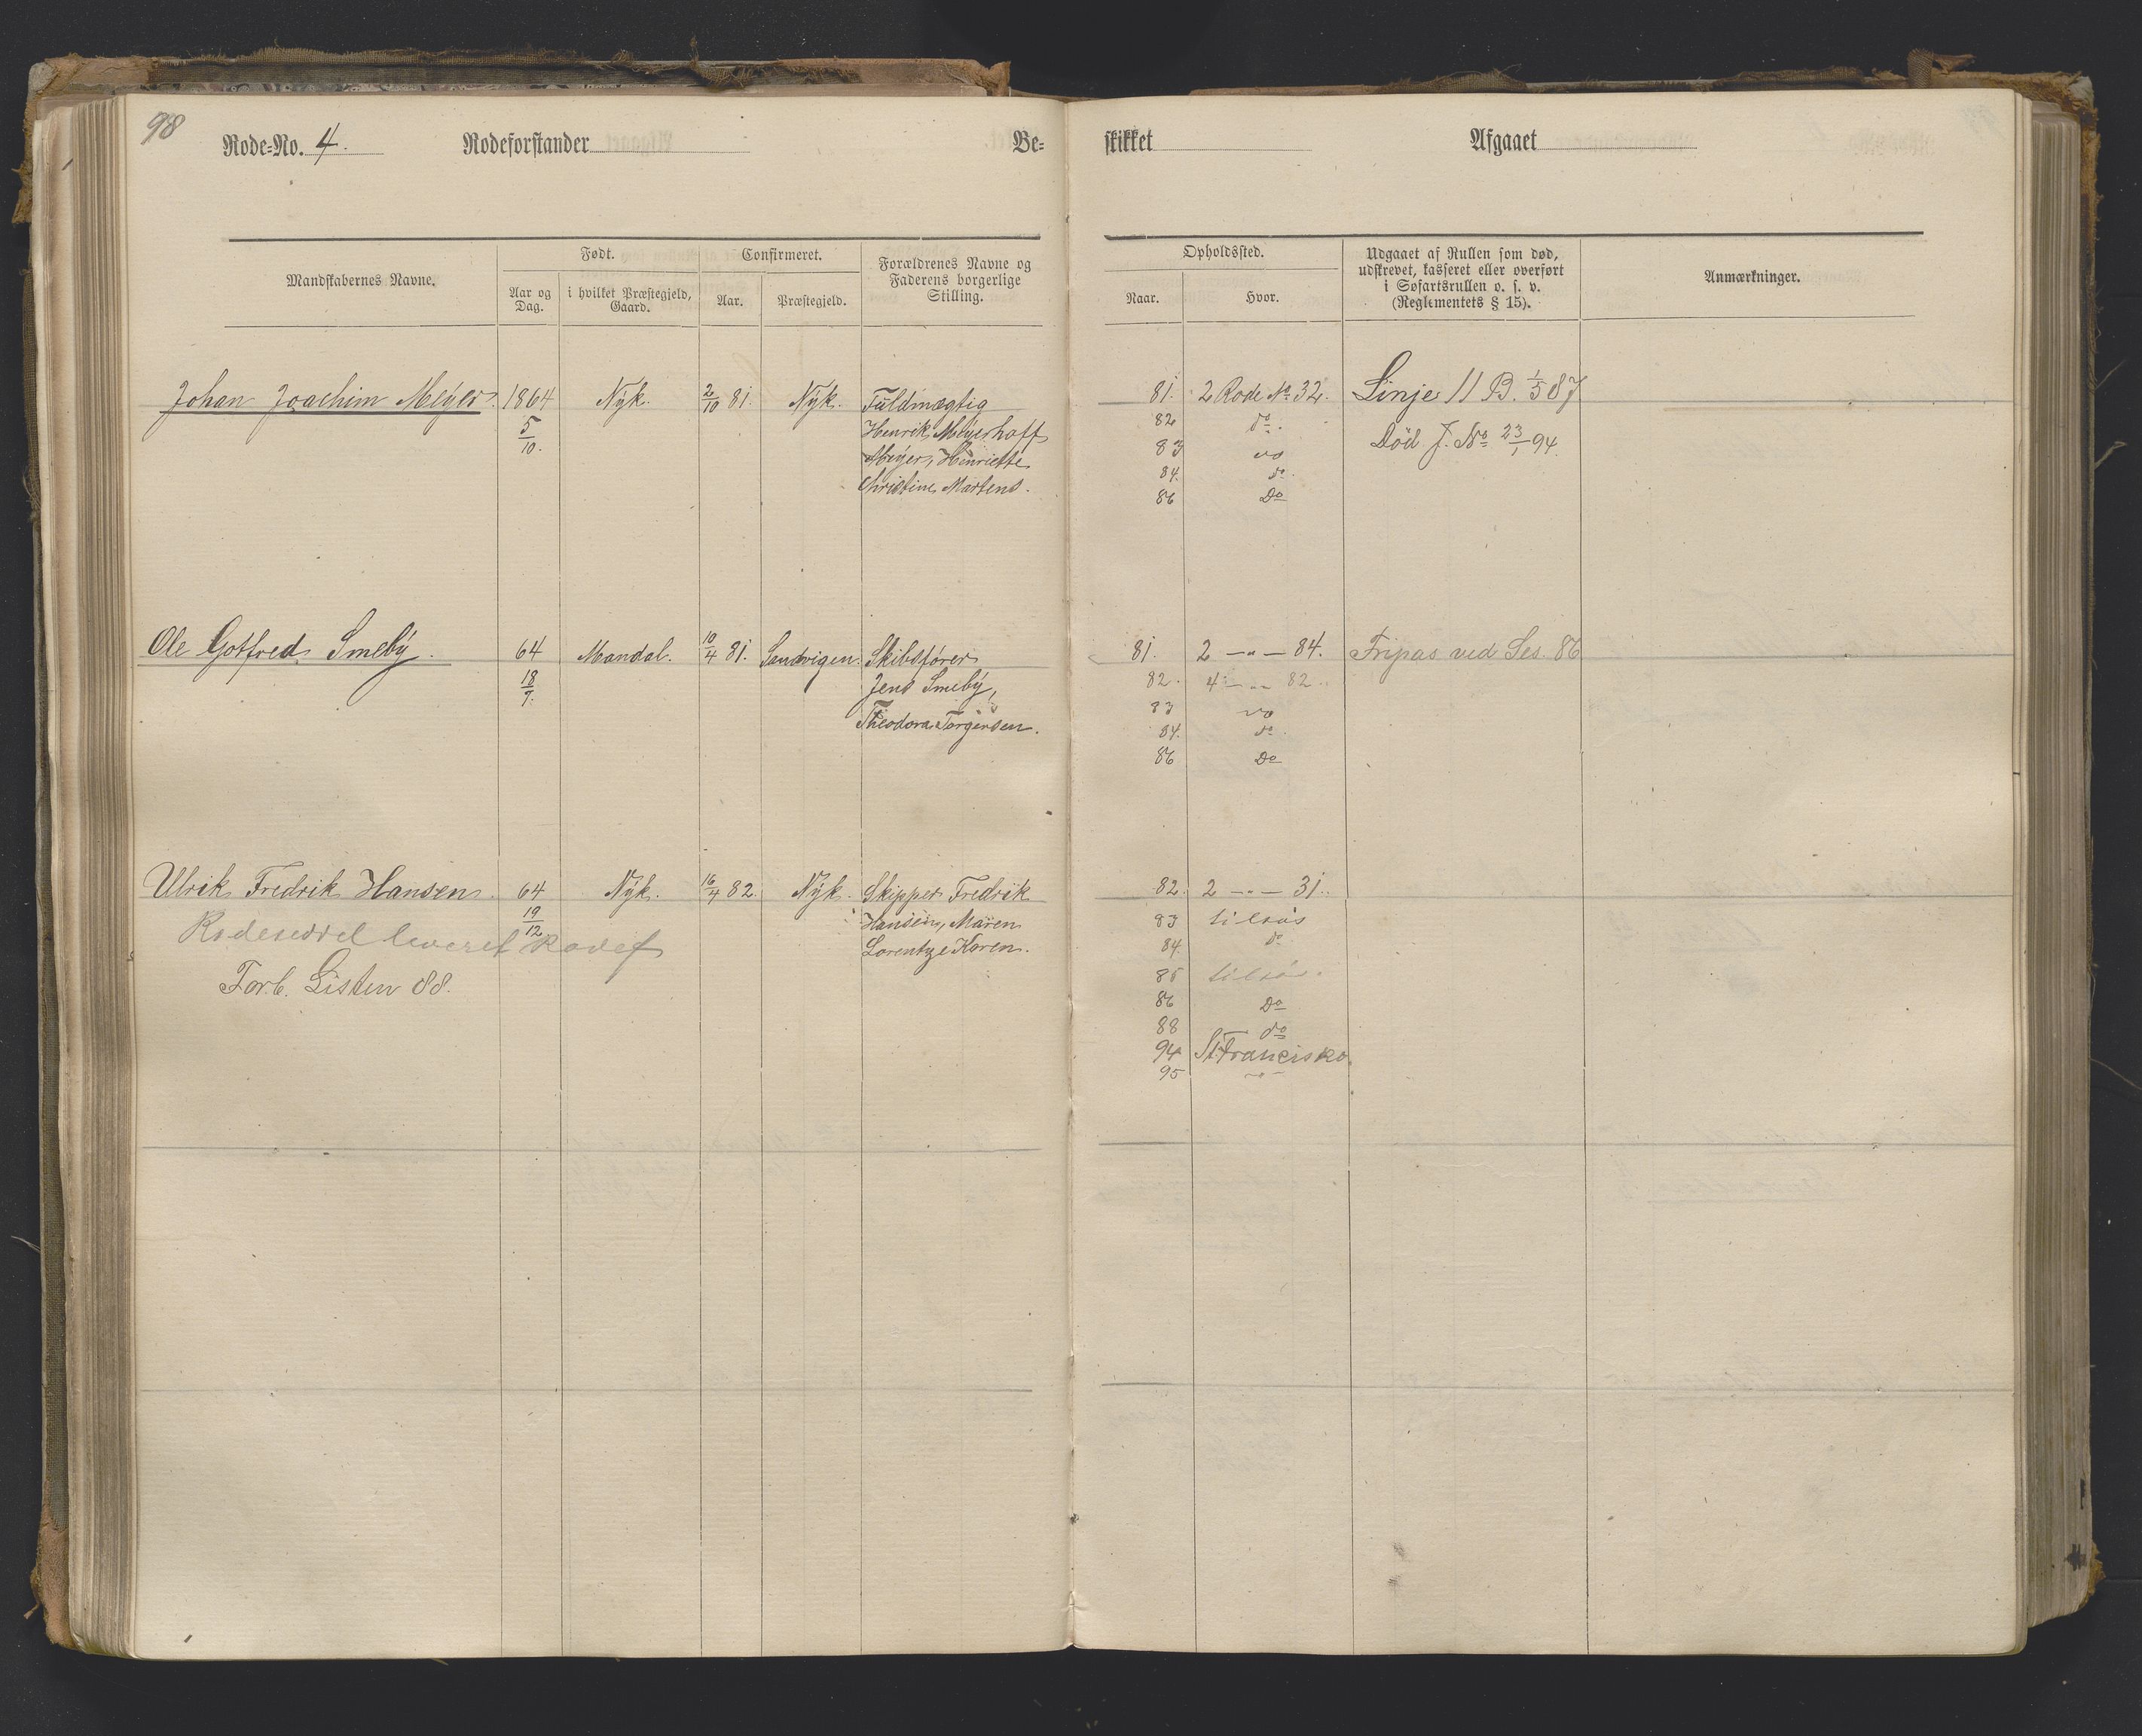 98
Rode-No. 4. Rodeforstander Be-
Født. Confirmeret.
Mandskabernes Navne. Aar og Dag. i hvilket Præstegjeld, Gaard. Aar. Præstegjeld. Forældrenes Navne og Faderens borgerlige Stilling.
Johan Joachim Meyer. 1864 Nyk. 2/10 81. Nyk. Fuldmægtig
5/10. Henrik Meyerhoff
Meyer, Henriette
Christine Martens.
Ole Gotfred Smeby. 64 Mandal. 10/4 81. Sandvigen. Skibsfører
18/7. Jens Smeby,
Theodora Torgersen.
Ulrik Fredrik Hansen. 64 Nyk. 16/4 82 Nyk. Skipper Fredrik
19/12 Hansen, Maren
Rodeseddel leveret
Lorentze Karen.
Forb. Listen 88.
skikket Afgaaet
Opholdssted. Udgaaet af Rullen som død, udskrevet, kasseret eller overført i Søfartsrullen o. s. v. (Reglementets § 15). Anmærkninger.
Naar. Hvor.
81. 2 Rode No 32. Linje 11 B. 1/5 87
82 do. Død J. No 23/1 94.
83 do
84. do.
86 Do
81. 2 — " — 84. Fripas ved Ses. 86
82. 4 — " — 82.
83 do
84. do
86 Do
82. 2 — " — 31.
83 tilsøs
84. do
85 tilsøs.
86 Do
88 do
94 St. Francisko.
95 — " —